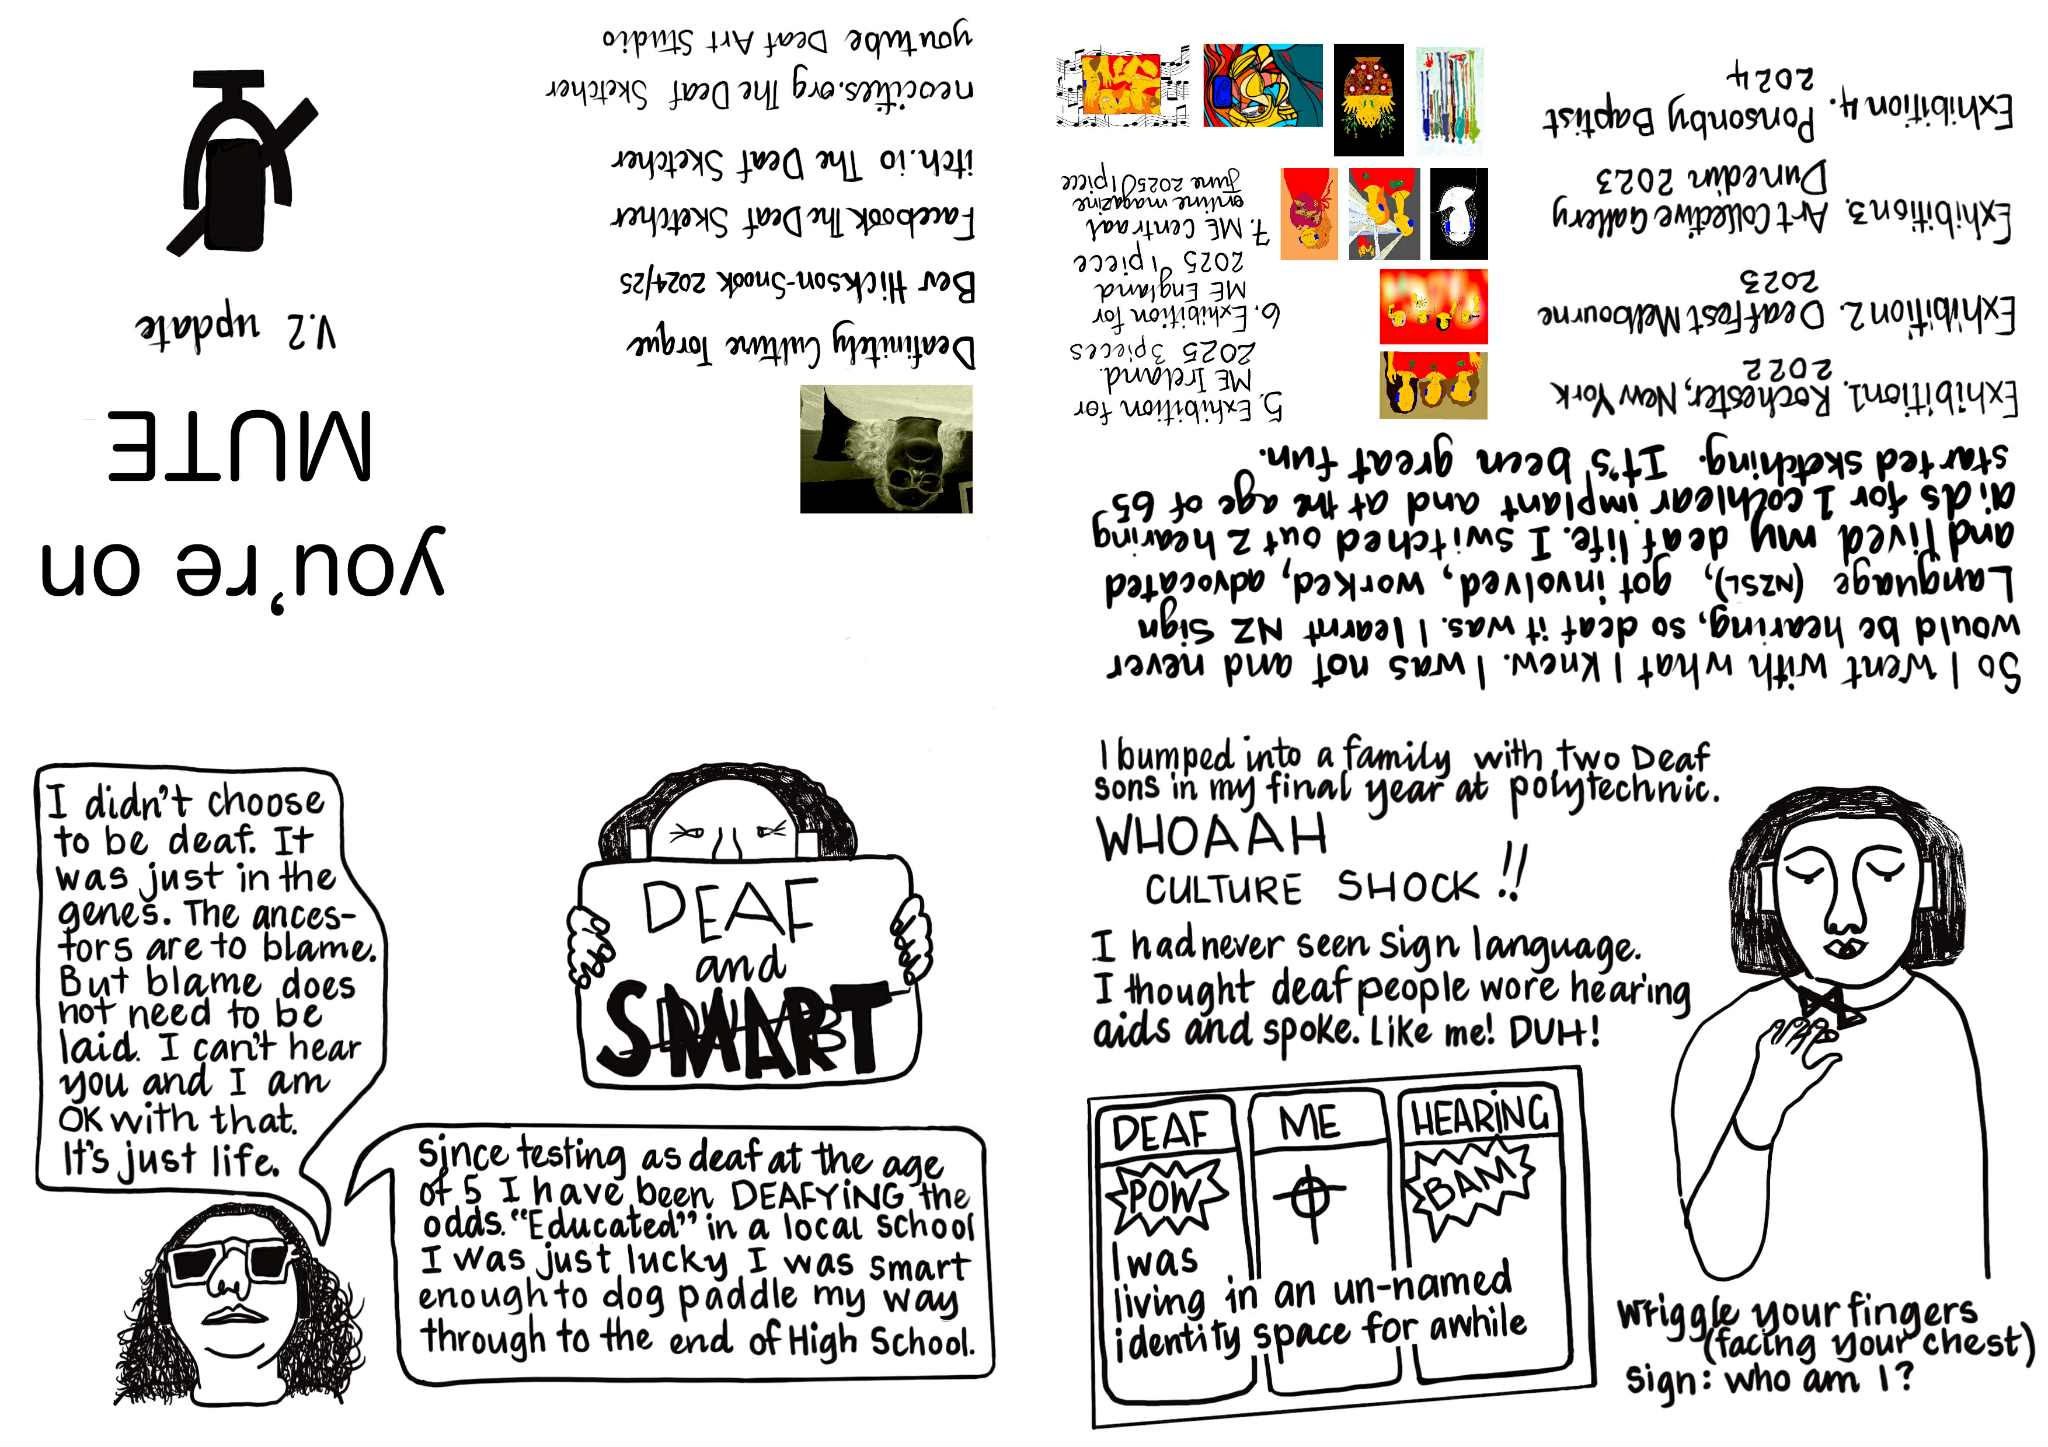 you're on
MUTE
V.2 update
Deafinitely Culture Torque
Bev Hickson-Snook 2024/25
Facebook The Deaf Sketcher
itch.io The Deaf Sketcher
neocities.org The Deaf Sketcher
youtube Deaf Art Studio
I didn't choose
to be deaf. It
was just in the
genes. The ances-
tors are to blame.
But blame does
not need to be
laid. I can't hear
you and I am
OK with that.
It's just life.
DEAF
and
SMART
Since testing as deaf at the age
of 5 I have been DEAFYING the
odds. "Educated" in a local school
I was just lucky I was smart
enough to dog paddle my way
through to the end of High School.
I bumped into a family with two Deaf
sons in my final year at polytechnic.
WHOAAH
CULTURE SHOCK!!
I had never seen sign language.
I thought deaf people wore hearing
aids and spoke. Like me! DUH!
DEAF
ME
HEARING
POW
BAM
I was
living in an un-named
identity space for awhile
Wriggle your fingers
(facing your chest)
Sign: who am I?
So I went with what I knew. I was not and never
would be hearing, so deaf it was. I learnt NZ Sign
Language (NZSL), got involved, worked, advocated
and lived my deaf life. I switched out 2 hearing
aids for 1 cochlear implant and at the age of 65
started sketching. It's been great fun.
Exhibition1. Rochester, New York
2022
Exhibition2. Deaffest Melbourne
2023
Exhibition3. Art Collective Gallery
Dunedin 2023
Exhibition4. Ponsonby Baptist
2024
5. Exhibition for
ME Ireland.
2025 3pieces
6. Exhibition for
ME England
2025 1piece
7. ME Centraal
online magazine
June 2025 1piece